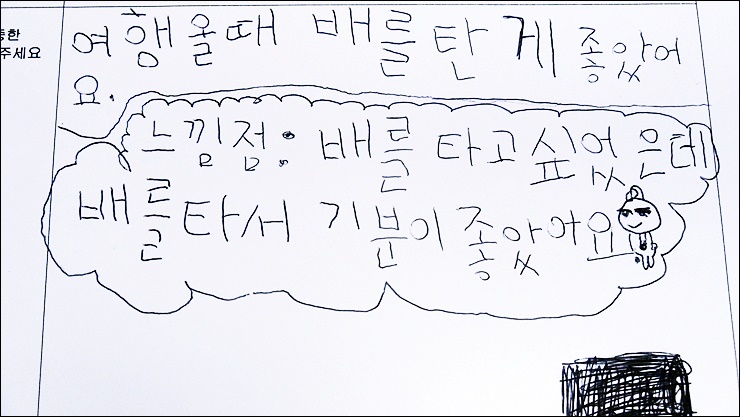 여행 올때 배를 탄 게 좋았어
요.
느낌점: 배를 타고싶었은데
배를 타서 기분이 좋았아요
한
주세요